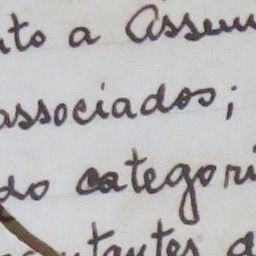 nto a Assem
associados;
do categori
entantes d